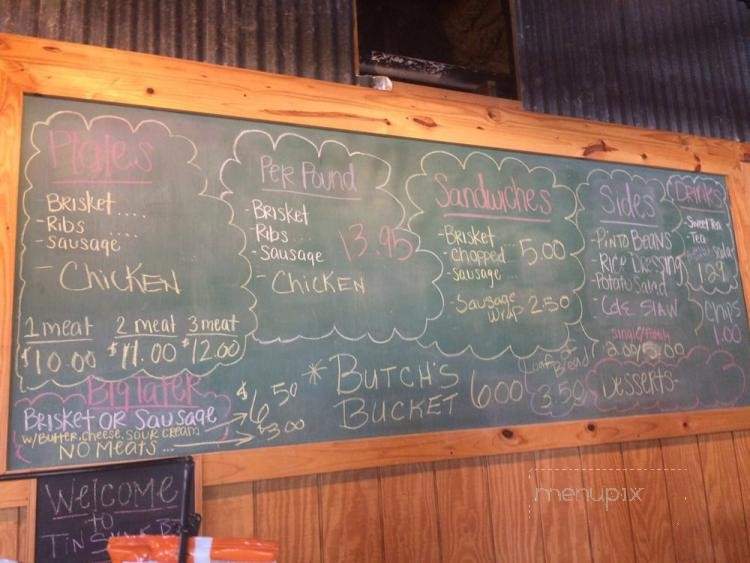 Plates
BRISKET....
- Ribs ....
- sausage
- CHICKEN
1 meat 2 meat 3 meat
$10.00 $11.00 $12.00
Per Pound
- BRISKET
- Ribs...
- Sausage
13.95
- CHICKEN
Sandwiches
- Brisket ...
- chopped
- sausage ...
5.00
- Sausage Wrap 2.50
Sides
- PINTO BEANS
- Rice Dressing
- Potato Salad
- Cole Slaw
Single/
2.00/
Drinks
- Sweet Tea
- Tea
1.29
Chips
1.00
Desserts-
Loaf of
Bread
3.50
* BUTCH'S
BUCKET 6.00
Big Tater
BRISKET OR Sausage $6.50
W/BUTTER, Cheese, SOUR CREAM
NO MEATS ... $3.00
WELCOME
to
TIN
menupix